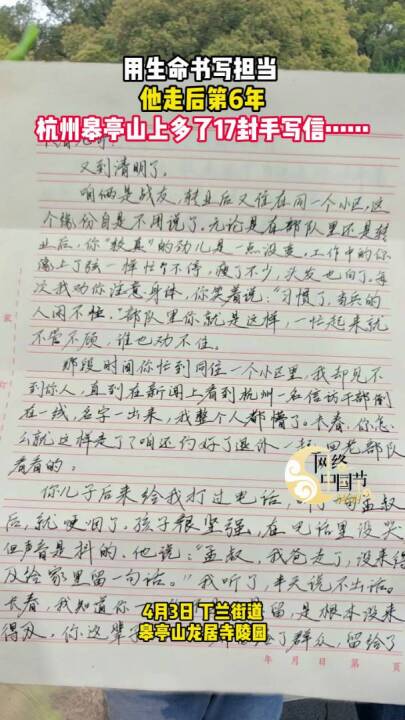 用生命书写担当
他走后第6年
杭州皋亭山上多了17封手写信……
又到清明了。
咱俩是战友，转业后又住在同一个小区，这
个缘份自是不用说了。无论是在部队里还是转
业后，你"较真"的劲儿是一点没变，工作中的你
像上了弦一样忙个不停，瘦了不少，头发也白了。每
次我劝你注意身体，你笑着说："习惯了，当兵的
人闲不住。"部队里你就是这样，一忙起来就
不管不顾，谁也劝不住。
那段时间你忙到同住一个小区里，我却见不
到你人，直到在新闻上看到杭州一名信访干部倒
在一线，名字一出来，我整个人都懵了。长春，你怎
么就这样走了？咱还约好了退休一起回老部队
看看的。
你儿子后来给我打过电话，
孟叔
后，就哽咽了，孩子很坚强，在电话里没哭
但声音是抖的，他说："孟叔，我爸走了，没来得
及给家里留一句话。"我听了，半天说不出话。
长春，我知道你
留，是根本没来
得及，你这辈子
了群众，留给了
网络中国节
4月3日 丁兰街道
皋亭山龙居寺陵园
装
订
年 月 日 第 页